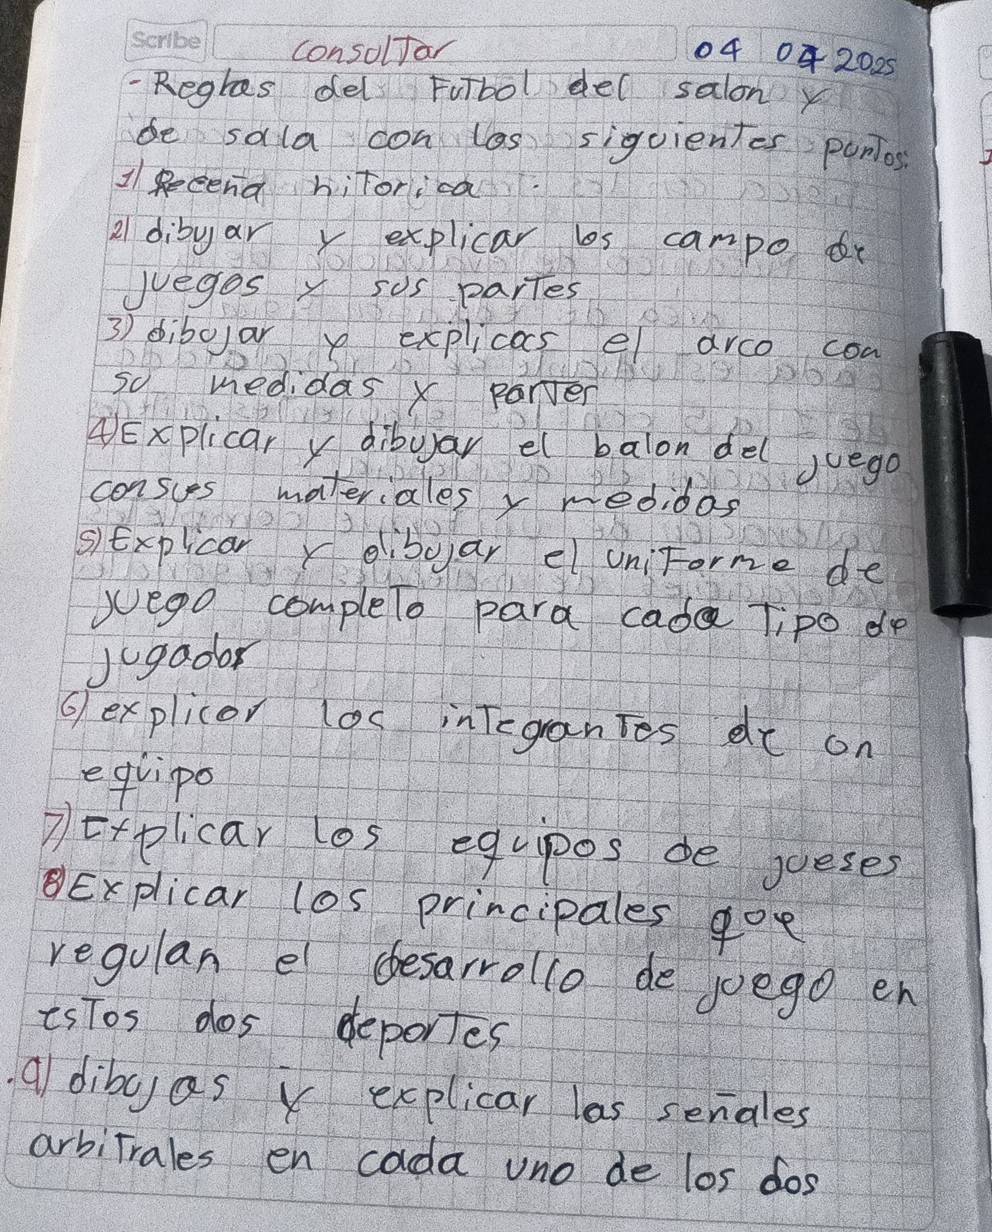 Scribe
consolTar 04 04 2025
-Reglas del FuTbol del salon y
de sala con los siguientes punTos:
1) Recena hiTorica
2) dibujar y explicar los campo de
juegos y sus parTes
3) dibujar y explicas el arco con
su medidas y parTes
4) Explicar y dibujar el balon del juego
consus maTeriales y medidas
5) Explicar y dibujar el uniForme de
juego compleTo para cada Tipo de
jugador
6) explicar los inTegranTes de un
equipo
7) Explicar los equipos de jueses
8) Explicar los principales que
regulan el desarrollo de juego en
esTos dos deporTes
9) dibujas y explicar las señales
arbiTrales en cada uno de los dos